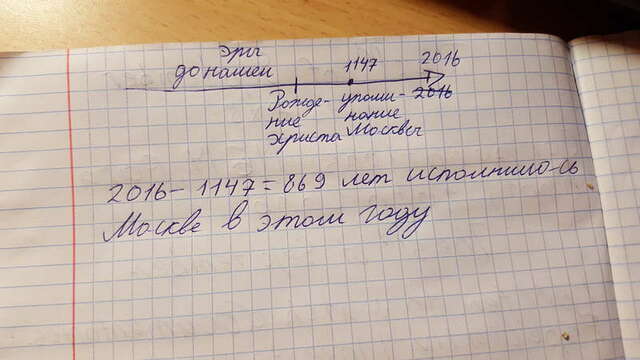 эры
до нашей
1147
2016
Рожде-
ние
Христа
упоми-
нание
Москвы
2016
2016 - 1147 = 869 лет исполнило-сь
Москве в этом году